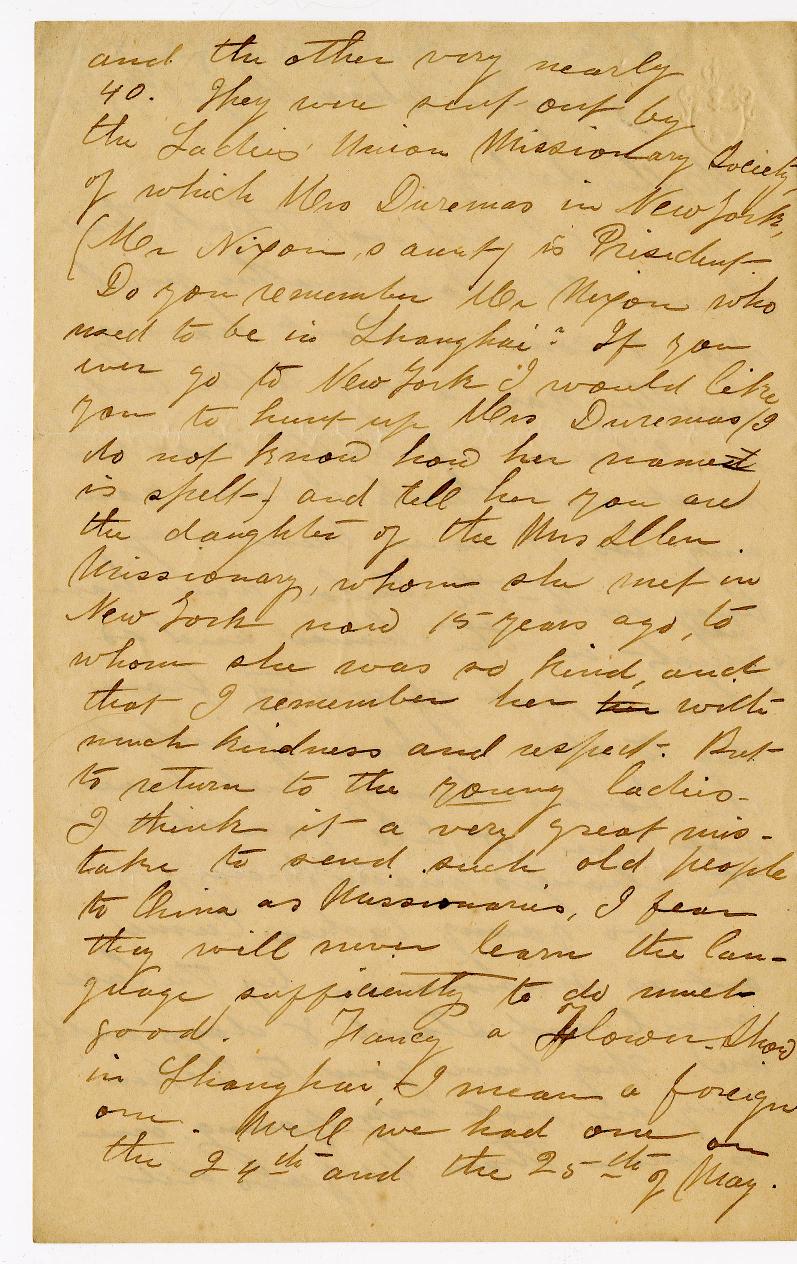 and the other very nearly
40. They were sent out by
the Ladies' Union Missionary Society,
of which Mrs Duremas in New York,
(Mr Nixon,s aunt) is President.
Do you remember Mr Nixon who
used to be in Shanghai? If you
ever go to New York I would like
you to hunt up Mrs Duremas (I
do not know how her name
is spelt) and tell her you are
the daughter of the Mrs Allen
Missionary, whom she met in
New York now 15 years ago, to
whom she was so kind, and
that I remember her her with
much kindness and respect. But
to return to the young ladies-
I think it a very great mis-
take to send such old people
to China as Missionaries, I fear
they will never learn the lan-
guage sufficiently to do much
good. Fancy a Flower-Show
in Shanghai, I mean a foreign
one. Well we had one on
the 24th and the 25th of May.